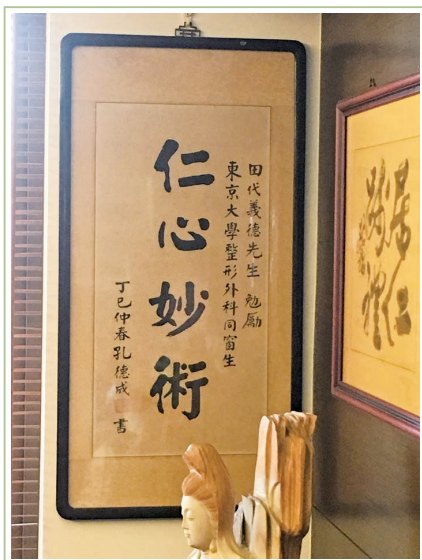 田代義德先生 勉勵
東京大學整形外科同窗生
仁心妙術
丁巳仲春孔德成 書
居仁